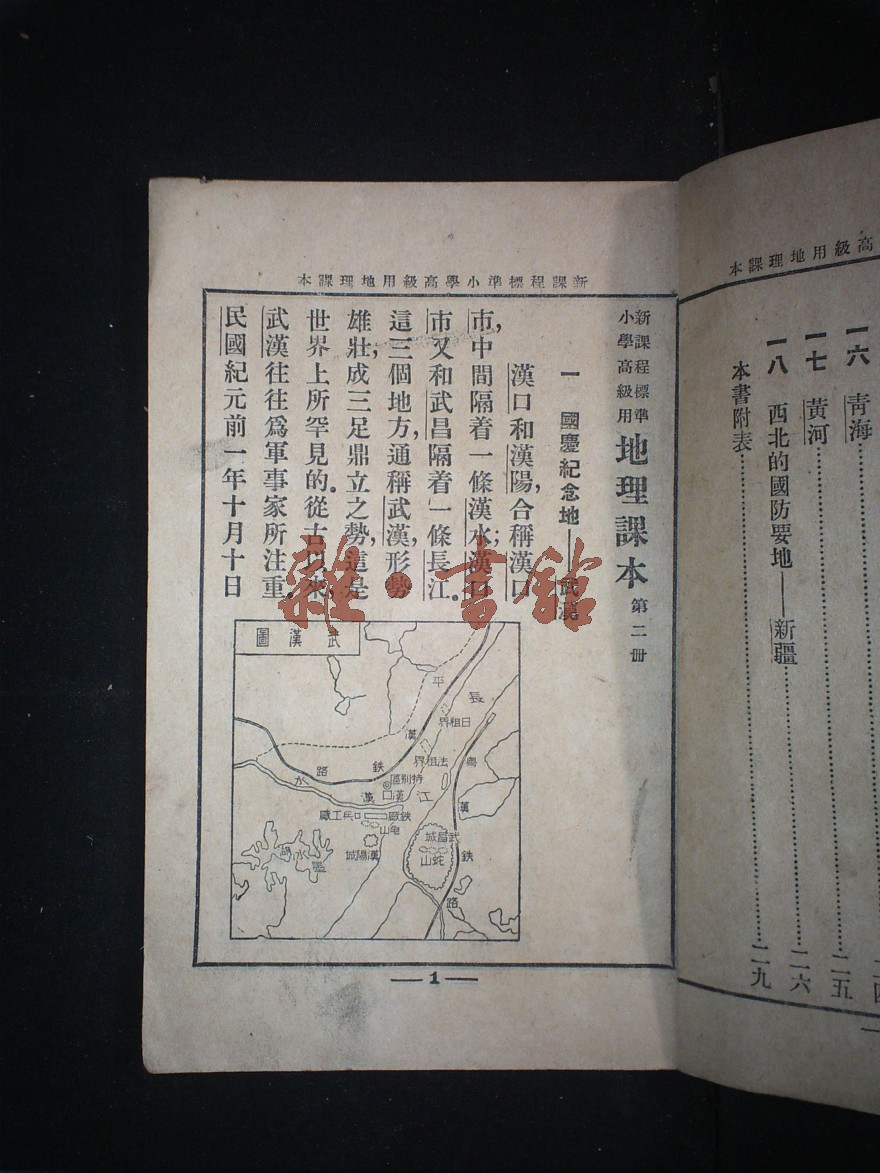 新課程標準小學高級用地理課本
新課程標準
小學高級用
地理課本 第二冊
一 國慶紀念地——武漢
漢口和漢陽,合稱漢口
市,中間隔着一條漢水;漢口
市又和武昌隔着一條長江。
這三個地方,通稱武漢,形勢
雄壯,成三足鼎立之勢,這是
世界上所罕見的。從古以來,
武漢往往爲軍事家所注重。
民國紀元前一年十月十日
武漢圖
平漢鐵路
長江
日租界
法租界
特別區
漢口
漢水
粵漢鉄路
兵工廠
鉄廠
龜山
漢陽城
武昌城
蛇山
墨水湖
—1—
高級用地理課本
一六 青海
一七 黃河……二五
一八 西北的國防要地——新疆……二六
本書附表……二九
雜·書館